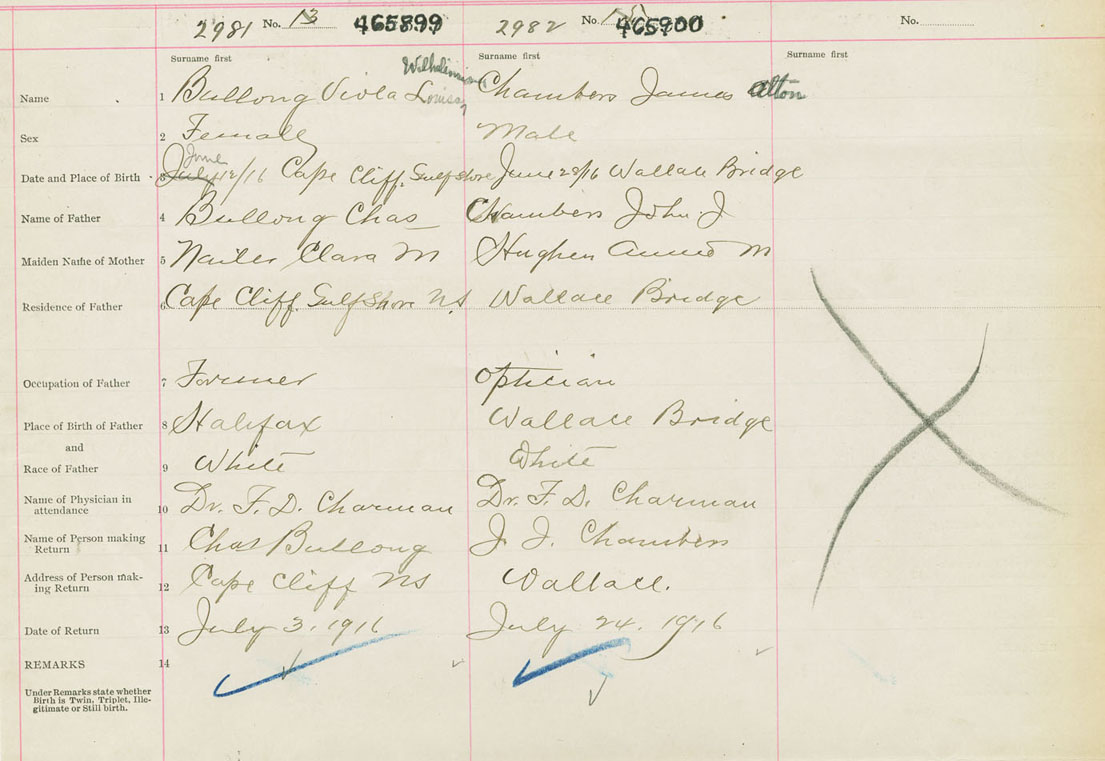 2981 No. 13 465899 2982 No. 465900 No.
Surname first Surname first Surname first
Wilhelmina
Name 1 Bullong Viola Louisa Chambers James Alton
Sex 2 Female Male
June
Date and Place of Birth 3 July 12/16 Cape Cliff. Gulf Shore June 28/16 Wallace Bridge
Name of Father 4 Bullong Chas Chambers John J
Maiden Name of Mother 5 Clara M Hughen Annie M
Residence of Father 6 Cape Cliff. Gulf Shore N.S. Wallace Bridge
Occupation of Father 7 Farmer Optician
Place of Birth of Father 8 Halifax Wallace Bridge
and
Race of Father 9 White White
Name of Physician in
attendance 10 Dr. F. D. Charman Dr. F. D. Charman
Name of Person making
Return 11 Chas Bullong J. J. Chambers
Address of Person mak-
ing Return 12 Cape Cliff NS Wallace.
Date of Return 13 July 3. 1916 July 24. 1916
REMARKS 14
Under Remarks state whether
Birth is Twin, Triplet, Ille-
gitimate or Still birth.